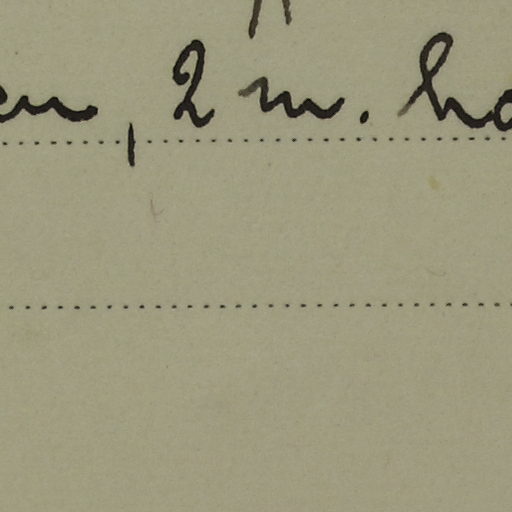 en, 2 m. ho